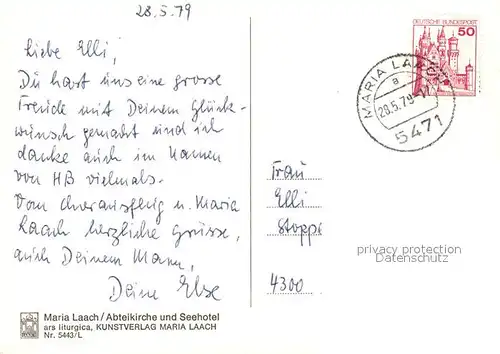 28.5.79
Liebe Elli,
Du hast uns eine grosse
Freude mit Deinem Glück-
wunsch gemacht und ich
danke auch im Namen
von HB vielmals.
Vom Chorausflug n. Maria
Laach herzliche Grüsse,
auch Deinem Mann,
Deine Else
DEUTSCHE BUNDESPOST
50
MARIA LAACH
a
28.5.79-17
5471
Frau
Elli
Stoppe
4300
privacy protection
www.ansichtskartenversand.com
Maria Laach/Abteikirche und Seehotel
ars liturgica, KUNSTVERLAG MARIA LAACH
Nr. 5443/L